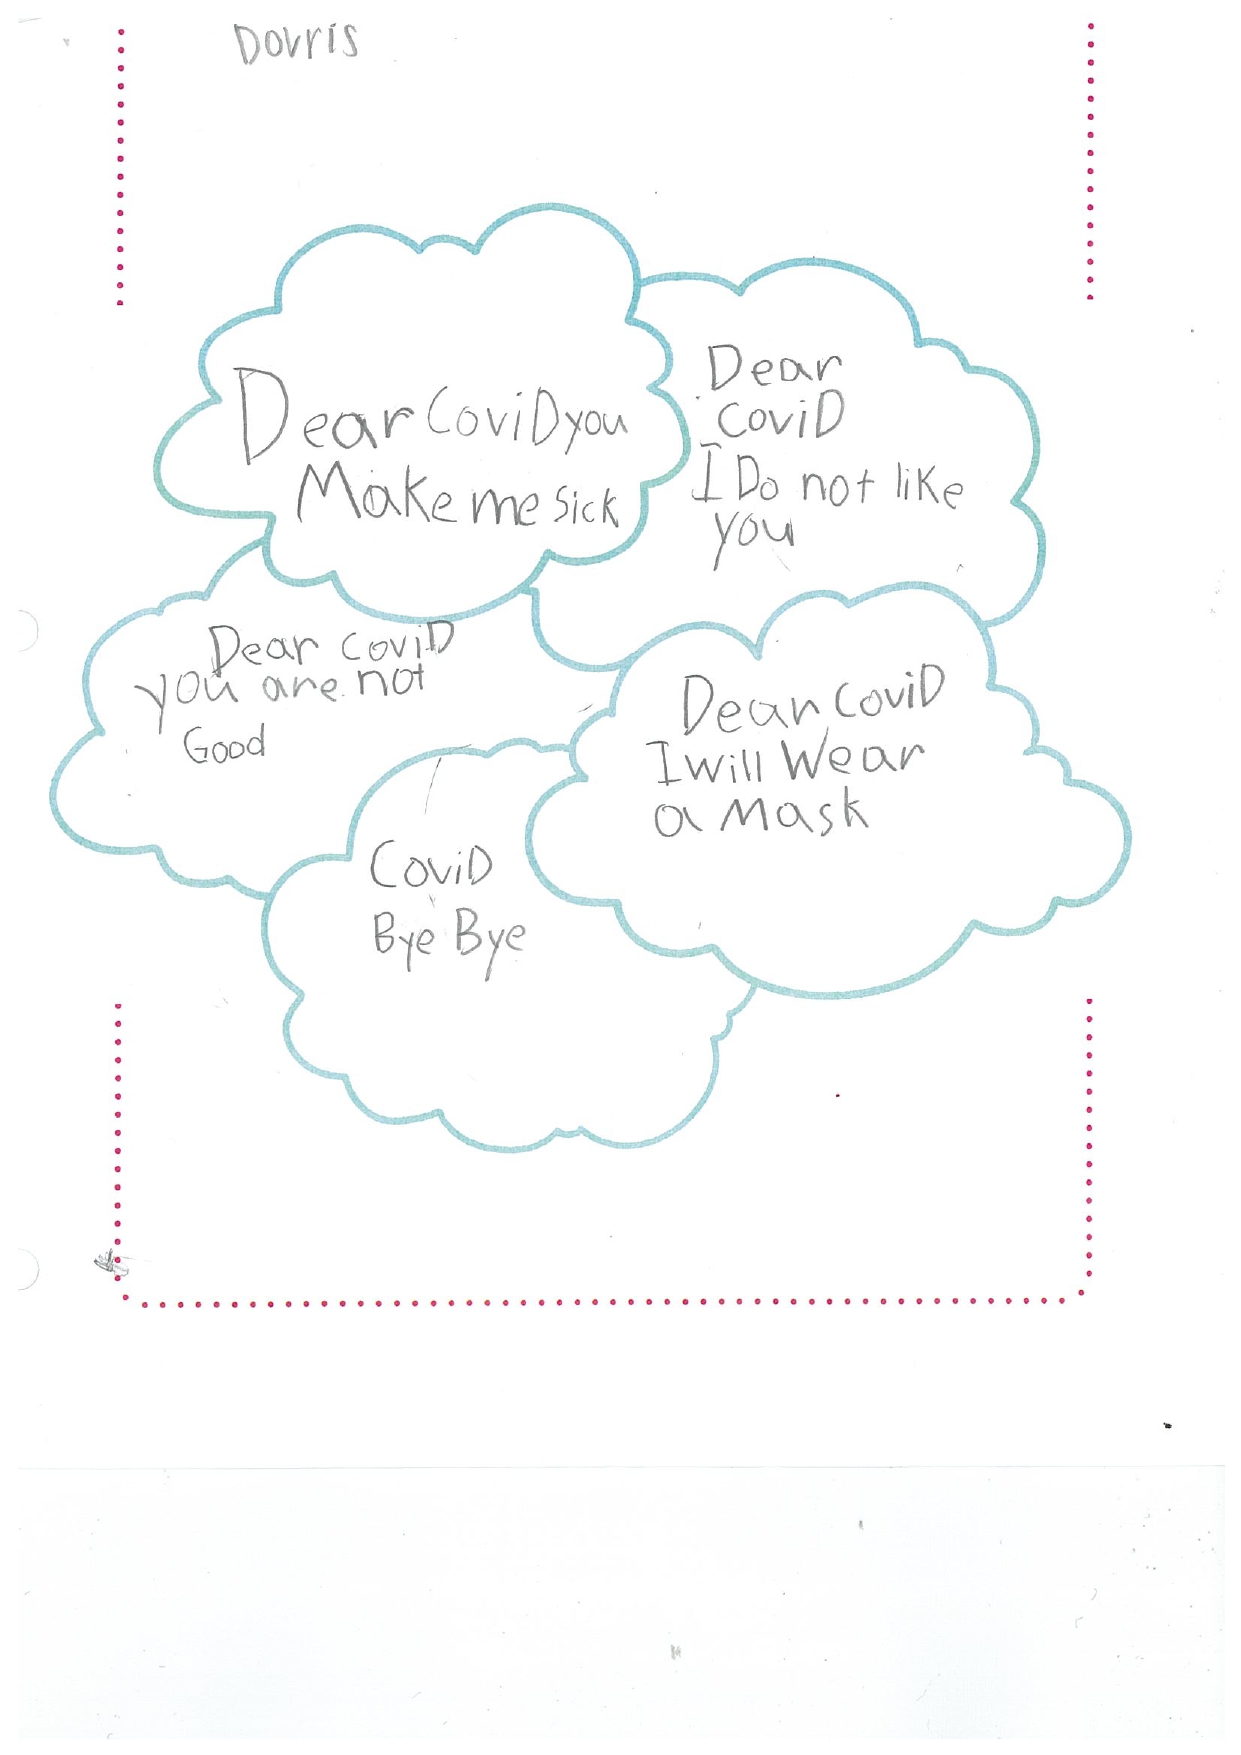 Dovris
Dear CoviD you
Make me sick
Dear
CoviD
I Do not like
you
Dear coviD
you are not
Good
Dear CoviD
I will Wear
a Mask
CoviD
Bye Bye